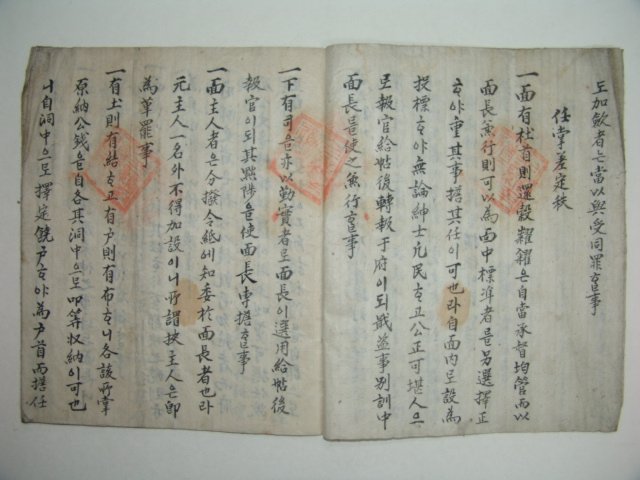 도加斂者는當以與受同罪ᄒᆞᆯ事
任掌差定秩
一面有社首則還穀糶糴은自當承督均管而以
面長兼行則可以為面中標準者를另選擇正
ᄒᆞ야重其事擔其任이可也라自面內로設為
投標ᄒᆞ야無論紳士凡民ᄒᆞ고公正可堪人으
로報官給帖後轉報于府이되戢盜事別訓中
面長를使之兼行ᄒᆞᆯ事
一下有司은亦以勤實者로面長이選用給帖後
報官이되其黜陟을使面長專擔ᄒᆞᆯ事
一面主人者은今撥令紙에知委於面長者也라
元主人一名外不得加設이니所謂挾主人은卽
為革罷事
一有土則有結ᄒᆞ고有戶則有布ᄒᆞ니各該所掌
原納公錢을自各其洞中으로叩筭收納이可也
니自洞中으로擇定饒戶ᄒᆞ야為戶首而擔任